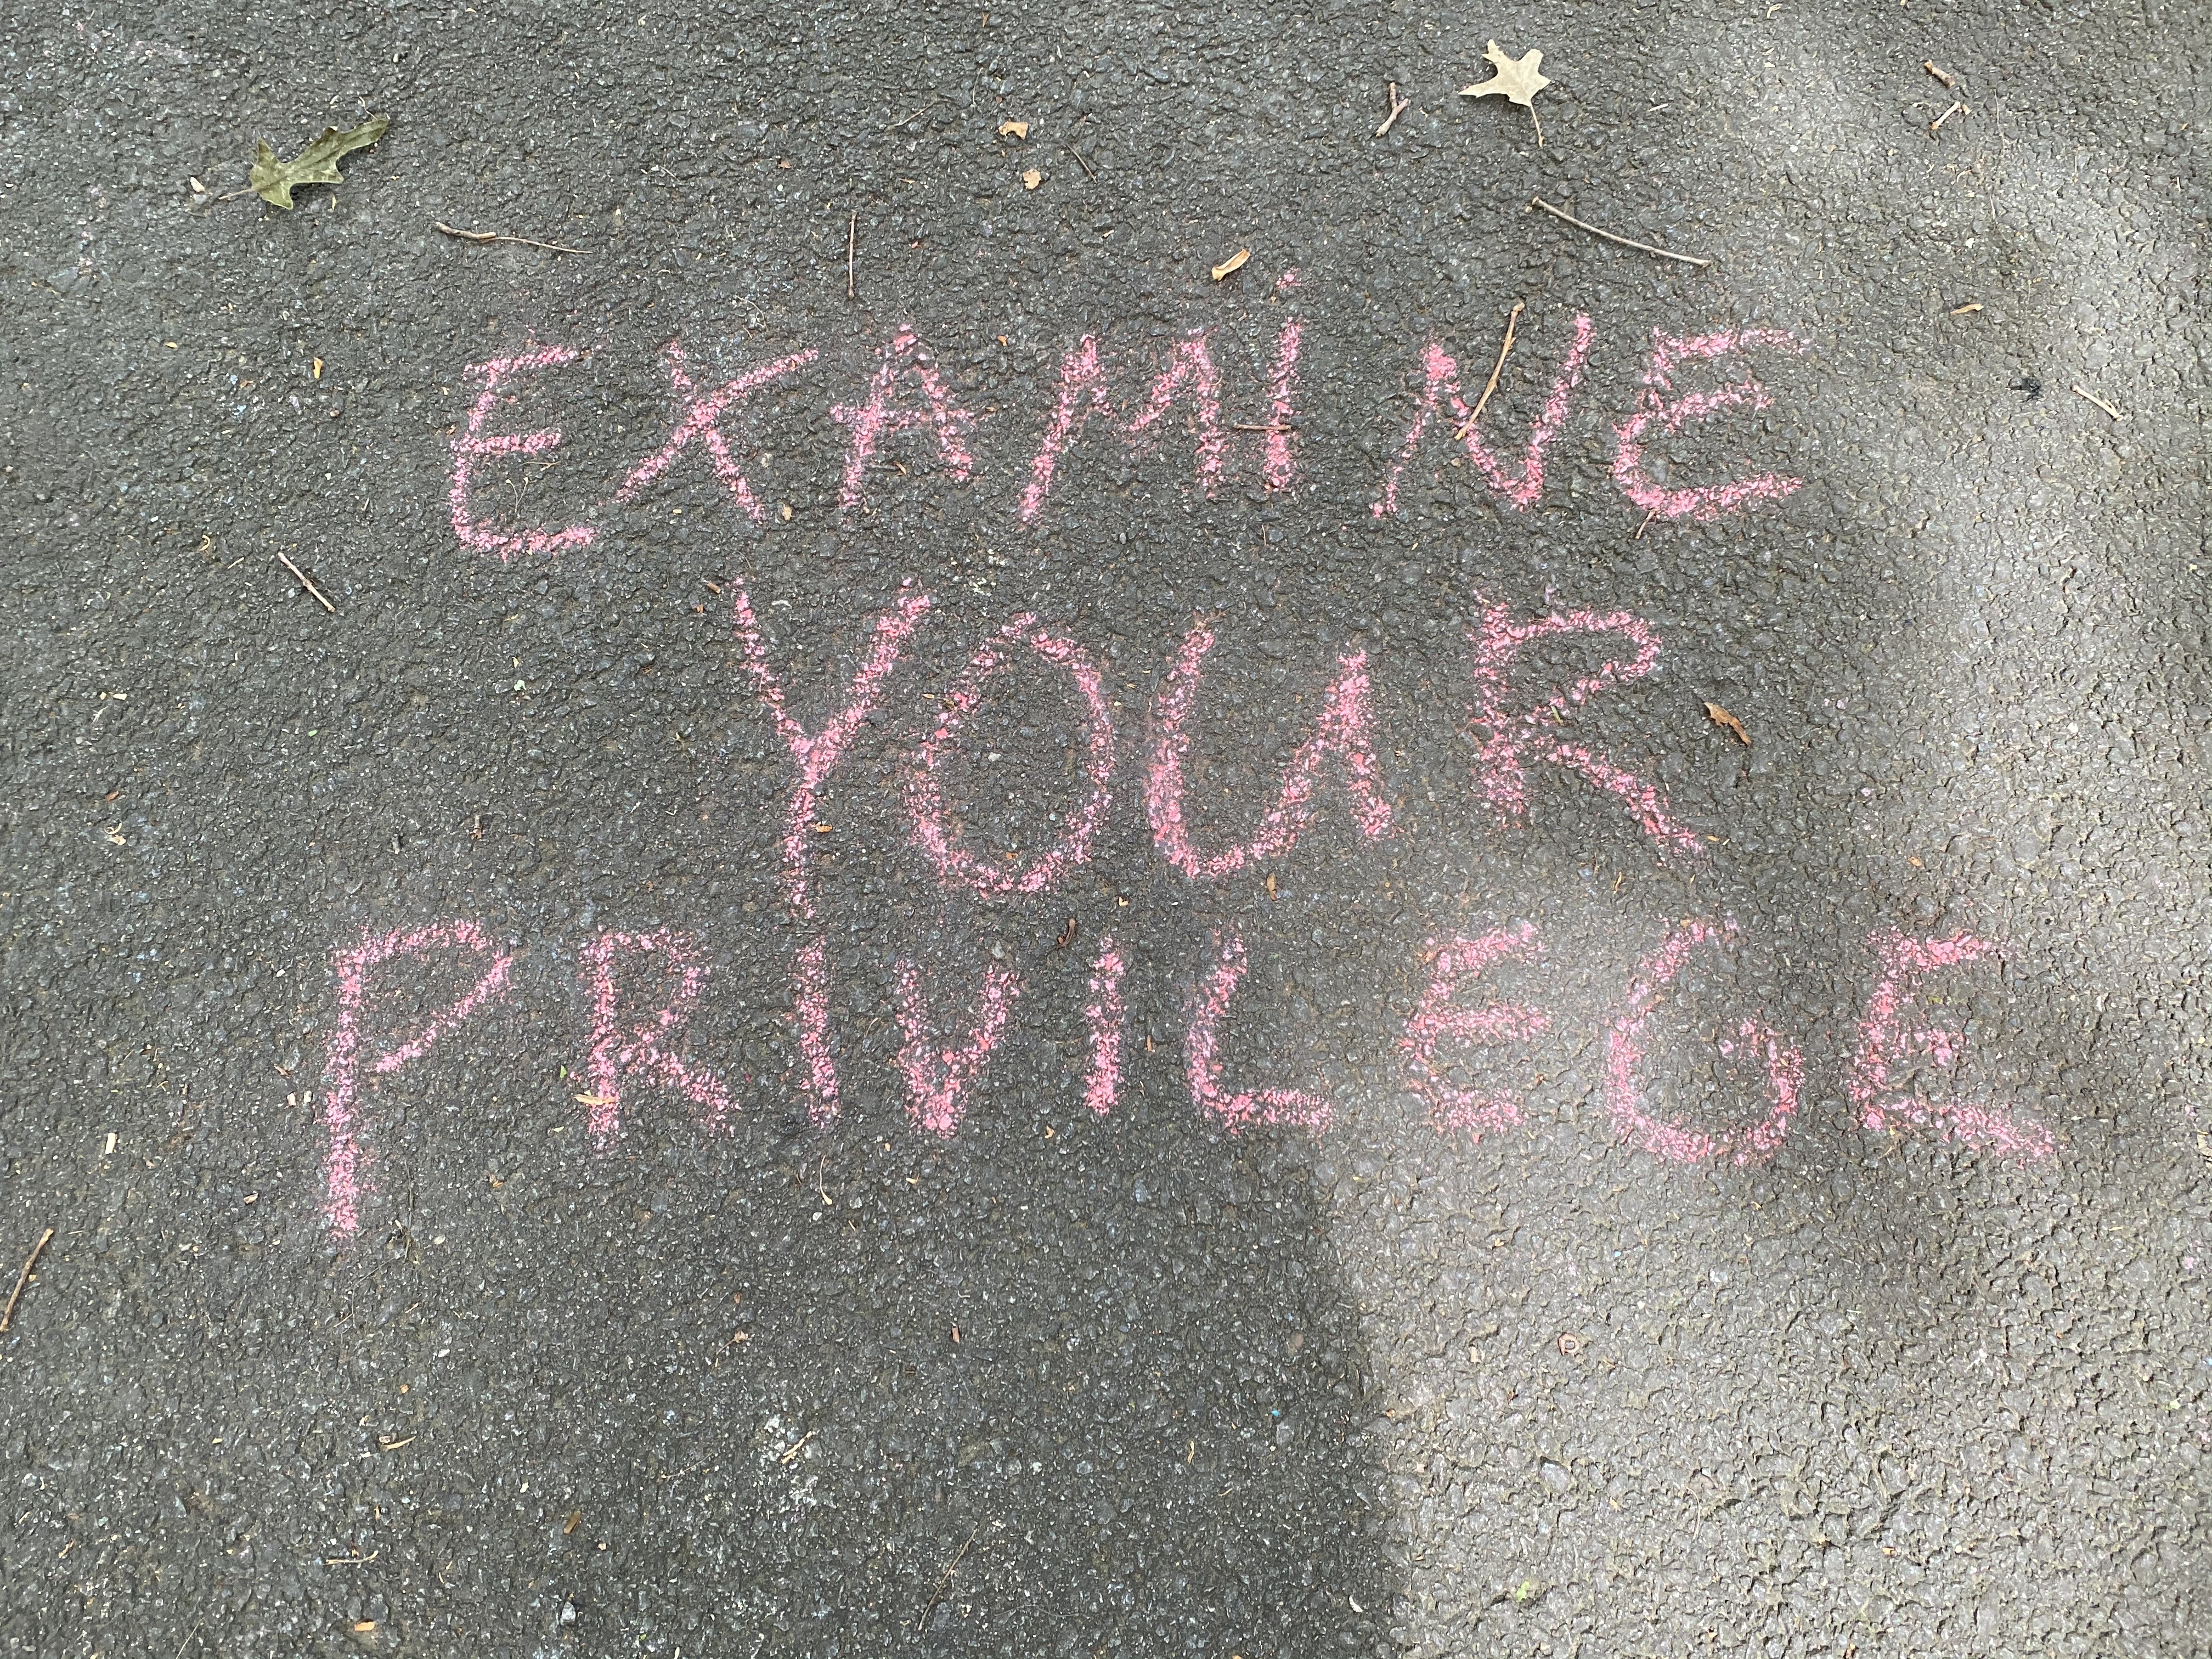 EXAMiNE
YOUR
PRIVILEGE